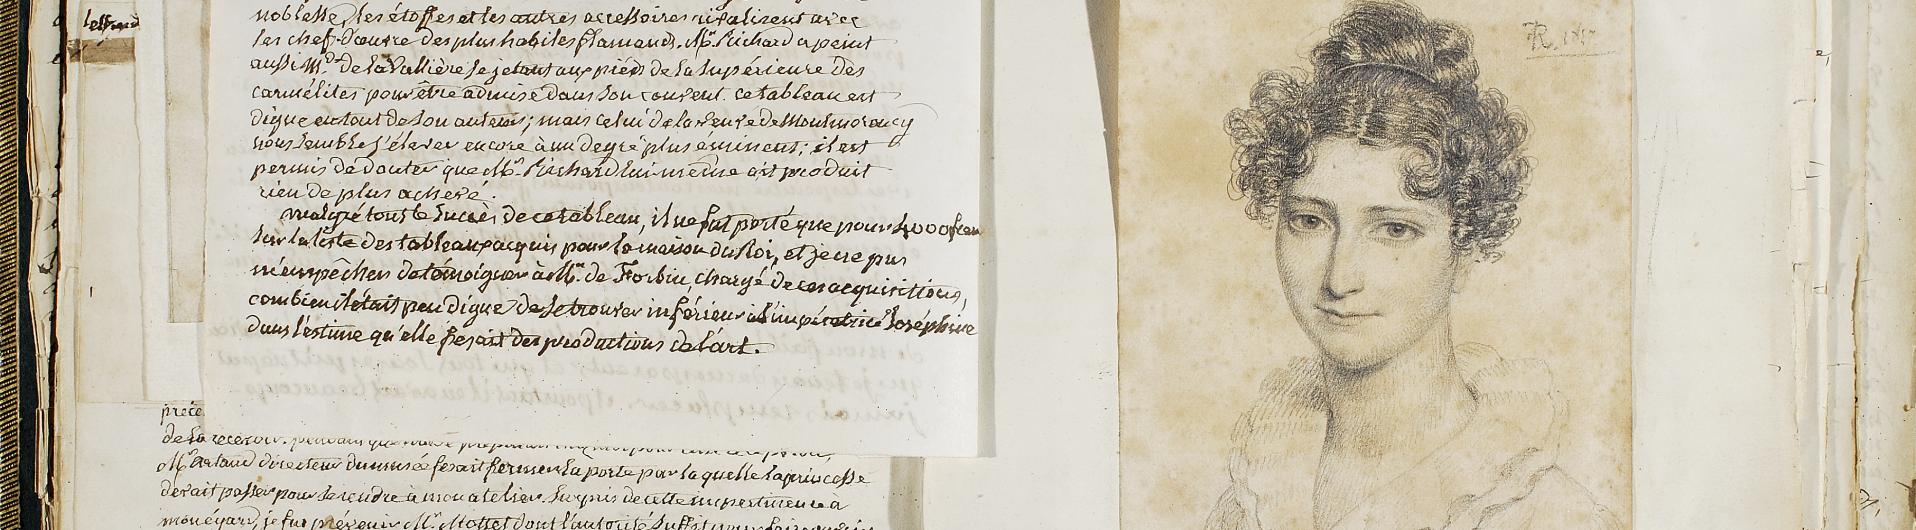 lesquel
noblesse, les étoffes et les autres accessoires rivalisent avec
les chef-d'œuvre des plus habiles flamands. Mr. Richard a peint
aussi Me. de la Vallière se jetant aux pieds de la supérieure des
carmélites pour être admise dans son couvent. ce tableau est
digne en tout de son auteur; mais celui de la veuve de Montmorency
nous semble s'élever encore à un degré plus éminent; il est
permis de douter que Mr. Richard lui-même ait produit
rien de plus achevé.
malgré tout le succès de ce tableau, il ne fut porté que pour 4000 f
sur la liste des tableaux acquis pour la maison du Roi, et je ne pus
m'empêcher de témoigner à Mr. de Forbin, chargé de ces acquisitions,
combien il était peu digne de se trouver inférieur à l'impératrice Joséphine
dans l'estime qu'elle fesait des productions de l'art.
préce
de la recevoir. pendant que
Mr. Artaud directeur du musée fesait fermer la porte par laquelle la princesse
devait passer pour se rendre à mon atelier. Surpris de cette impertinence à
mon égard, je fus prévenir Mr. Mottet dont l'autorité suffit pour faire
R. 1817